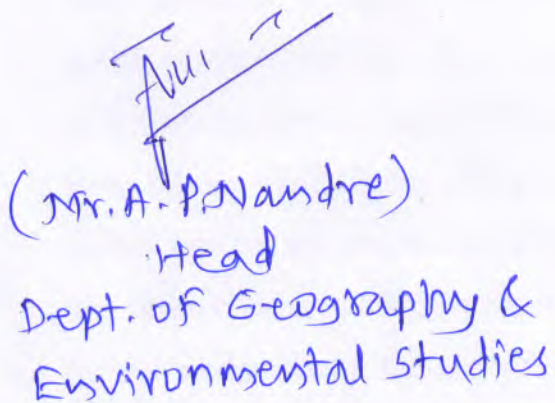 (Mr. A. P. Nandre)
Head
Dept. of Geography &
Environmental Studies